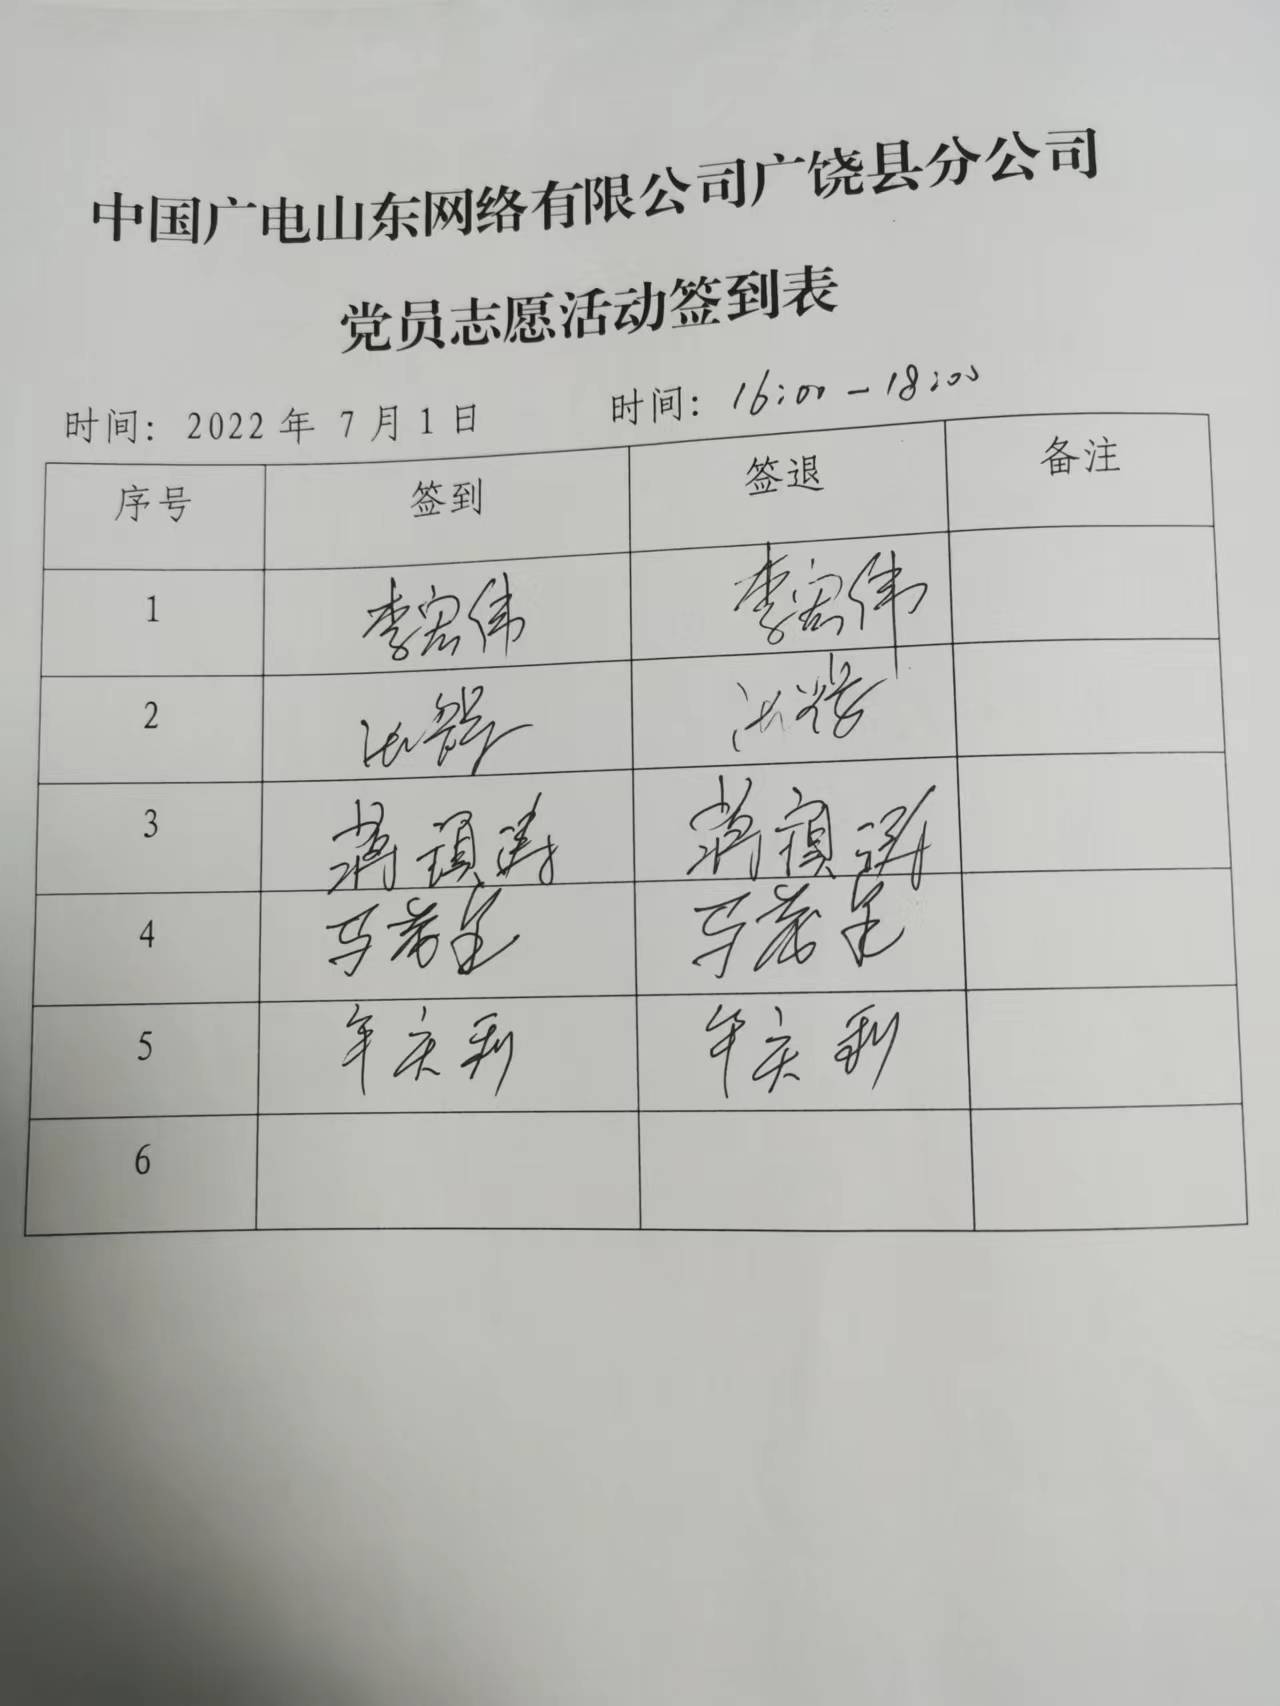 中国广电山东网络有限公司广饶县分公司
党员志愿活动签到表
时间: 2022年 7月1日 时间: 16:00-18:00
序号 签到 签退 备注
1 李宏伟 李宏伟
2
3 涛
4 马
5 年庆利 年庆利
6